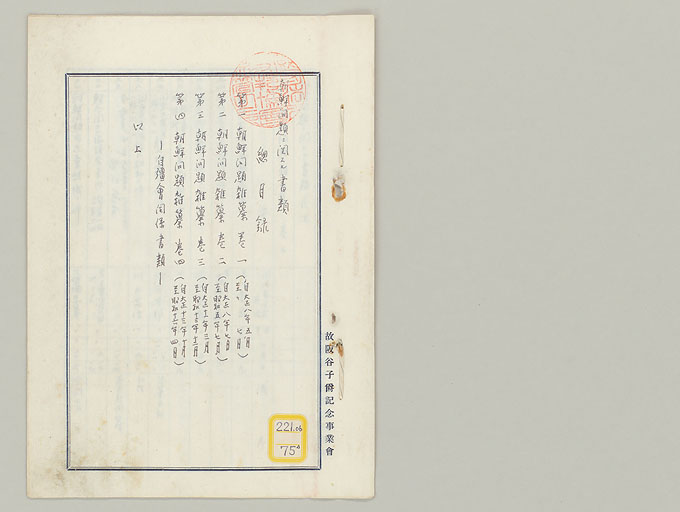 朝鮮问題ニ関スル書類
總目録
第一 朝鮮问題雑纂 巻一 (自大正八年五月 至〃 七月)
第二 朝鮮问題雑纂 巻二 (自大正八年七月 至昭和五年七月)
第三 朝鮮问題雑纂 巻三 (自大正十年三月 至昭和十三年十二月)
第四 朝鮮问題雑纂 巻四 (自大正十三年十月 至昭和十二年四月)
ー自彊會関係書類ー
以上
故阪谷子爵記念事業會
221.06
75